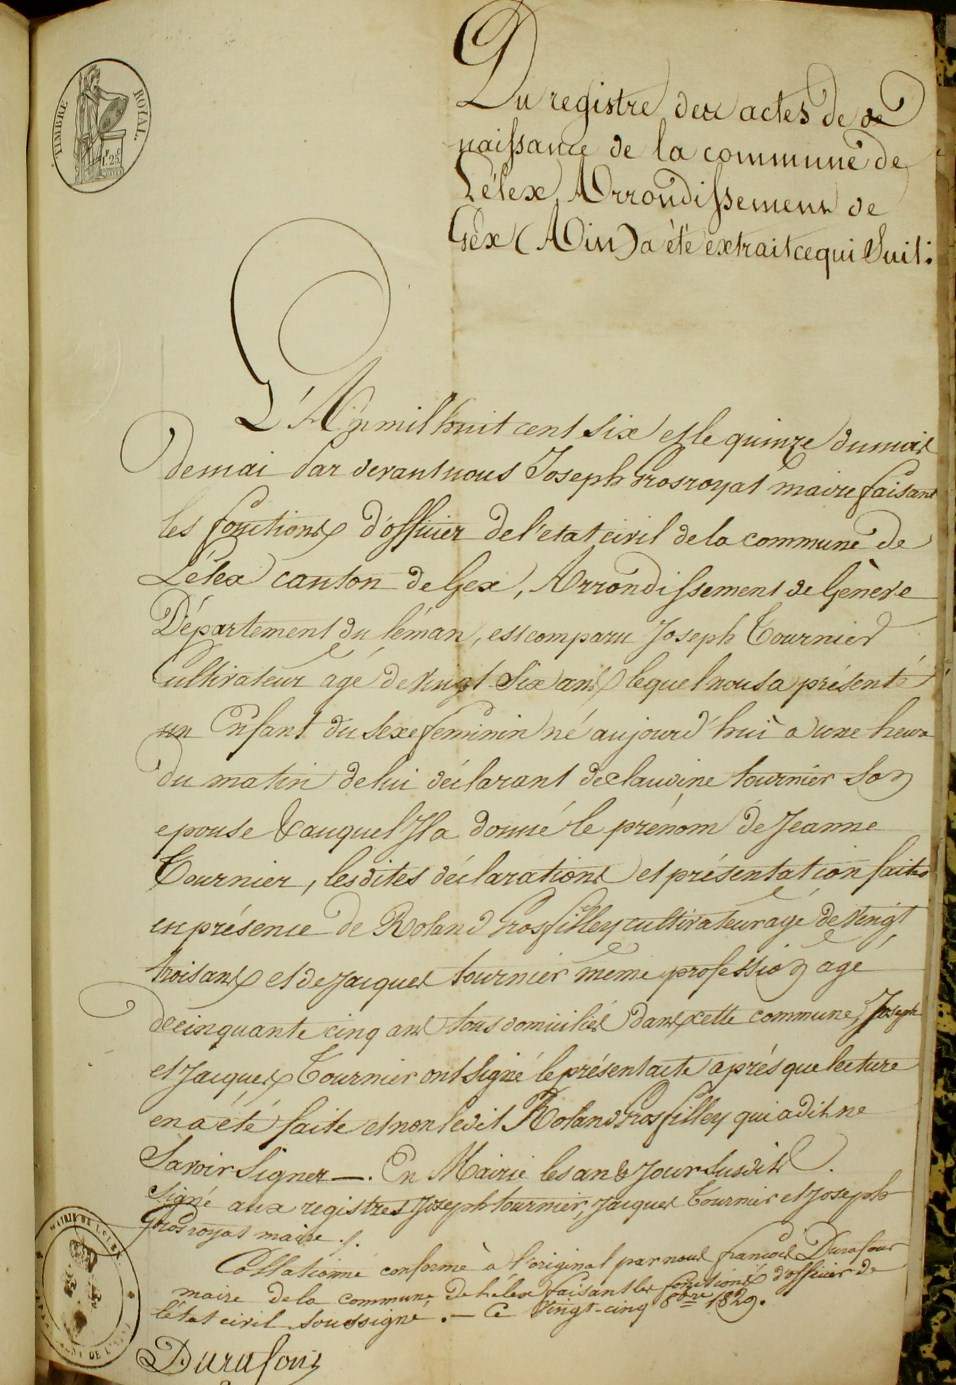 TIMBRE ROYAL
1f 25c
Du registre des actes de de
naissance de la commune de
Lélex, Arrondissement de
Gèx (Ain) a été extrait ce qui Suit :
L'An mil huit cent six et le quinze du mois
de mai Par devant nous Joseph Grosroyat maire faisant
les fonctions d'officier de l'etat civil de la commune de
Lélex canton de Gex, Arrondissement de Génève
Département du léman, est comparu Joseph Tournier
Cultivateur agé de vingt Six ans lequel nous a présenté
un Enfant du Sexe feminin né aujourd'hui à une heure
du matin de lui déclarant de claudine tournier son
epouse & auquel Il a donné le prénom de Jeanne
Tournier, lesdites déclarations et présentation faites
en présence de Roland Grosfilley cultivateur agé de vingt
trois ans et de jacques tournier même profession agé
de cinquante cinq ans tous domiciliés dans cette commune, Joseph
et Jacques Tournier ont Signé le présent acte après que lecture
en a été faite et non ledit Roland Grosfilley qui a dit ne
Savoir Signer —. En Mairie les an & Jour Susdits.
Signé aux registres Joseph tournier, Jacques Tournier et Joseph
Grosroyat maire ./.
Collationné conforme à l'original par nous françois Durafour
maire de la commune de Lélex faisant les fonctions d'officier de
l'état civil soussigné. — Ce vingt-cinq 8bre 1829.
Durafour
MAIRIE DE